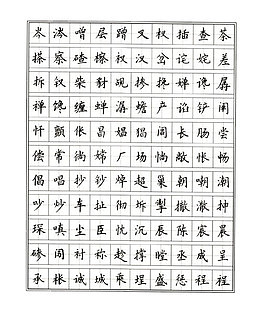 岑 涔 噌 层 蹭 叉 杈 插 查 茶
搽 察 碴 檫 杈 汊 岔 诧 姹 差
拆 钗 柴 豺 觇 掺 搀 婵 谗 孱
禅 馋 缠 蝉 潺 蟾 产 谄 铲 阐
忏 颤 伥 昌 娼 猖 阊 长 肠 尝
偿 常 徜 嫦 厂 场 惝 敞 怅 畅
倡 唱 抄 钞 焯 超 巢 朝 嘲 潮
吵 炒 车 扯 彻 坼 掣 撤 澈 抻
琛 嗔 尘 臣 忱 沉 辰 陈 宸 晨
碜 衬 称 趁 撑 瞠 丞 成 呈
承 枨 诚 城 乘 埕 盛 惩 程 裎